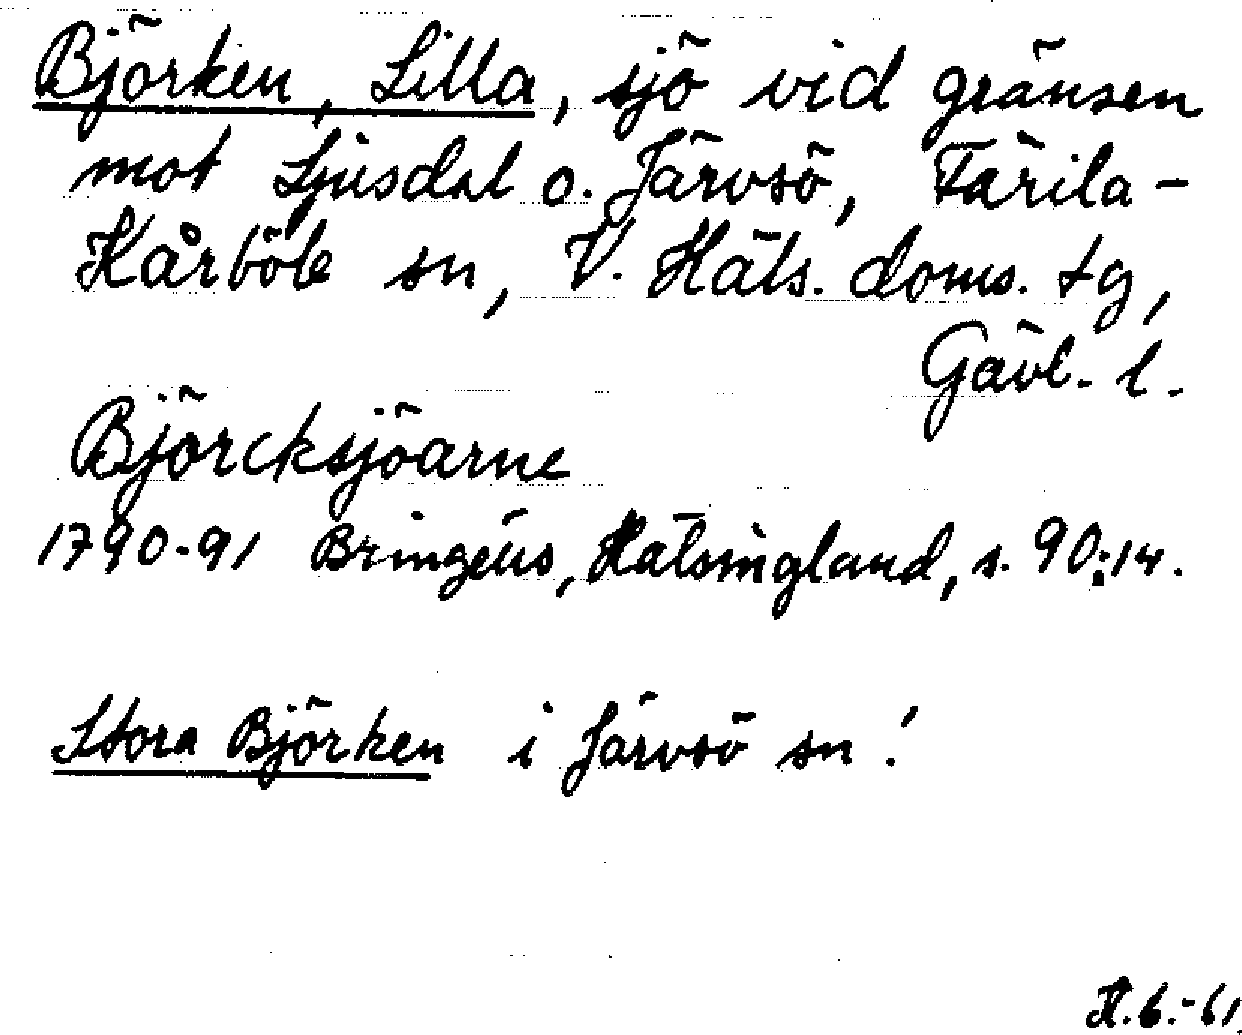 Björken, Lilla, sjö vid gränsen
mot Ljusdal o. Järvsö, Färila-
Kårböle sn, V. Häls. doms. tg,
Gävl. l.
Björcksjöarne
1790-91 Bringéus, Hälsingland, s. 90:14.
Stora Björken i Järvsö sn.